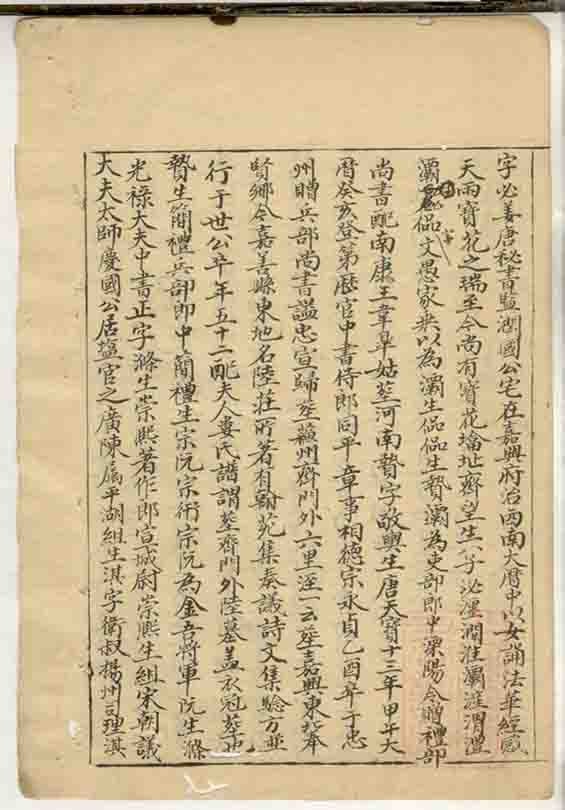 字必善唐秘書監潤國公宅在嘉興府治西南大曆中以女誦法華經感
天雨寶花之瑞至今尚有寶花墖址齊望生八子泌澄澗淮灞滻渭灃
灞侃文愚家乗以為灞生侃侃生贄灞為吏部郎中溧陽令贈禮部
尚書配南康王韋臯姑塟河南贄字敬輿生唐天寶十三年甲午大
曆癸亥登第歷官中書侍郎同平章事相德宗永貞乙酉卒于忠
州贈兵部尚書謚忠宣歸塟蘇州齊門外六里涇一云塟嘉興東北奉
賢鄉今嘉善縣東地名陸莊所著有翰苑集奏議詩文集驗方並
行于世公卒年五十二配夫人婁氏譜謂塟齊門外陸墓盖衣冠塟也
贄生簡禮兵部郎中簡禮生宗沅宗術宗沅為金吾將軍沅生滌
光祿大夫中書正字滌生崇熙著作郎宣城尉崇熙生組宋朝議
大夫太師慶國公居塩官之廣陳属平湖組生淇字衛叔楊州司理淇